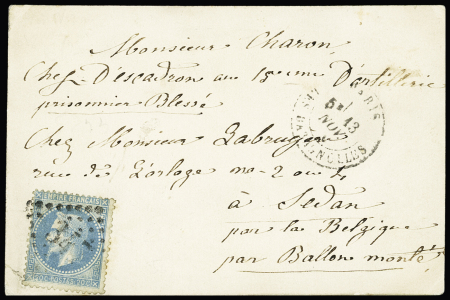 Monsieur Charon
Chef D'escadron au 15eme D'artillerie
prisonnier Blessé
Chez Monsieur Labruyere
rue de L'orloge no - 2 ou 4
à Sedan
par la Belgique
par Ballon monté
PARIS
5E
13
NOV
BATIGNOLLES
EMPIRE FRANÇAIS
20c POSTES 20c